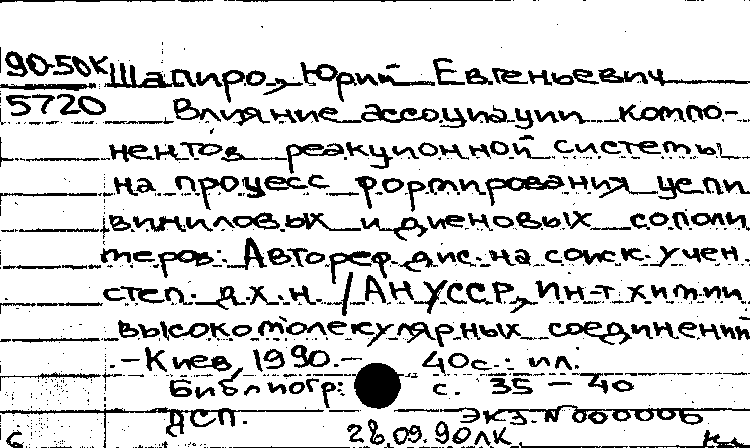 90-50К Шапиро, Юрий Евгеньевич
5720 Влияние ассоциации компо-
нентов реакционной системы
на процесс формирования цепи
виниловых и диеновых сополи
меров: Автореф. дис. на соиск. учен.
степ. д.х.н. /АН УССР, Ин-т химии
высокомолекулярных соединений
.-Киев, 1990.- 40с.: ил.
Библиогр: с. 35-40
ДСП. экз. N 000006
28.09.90ЛК.